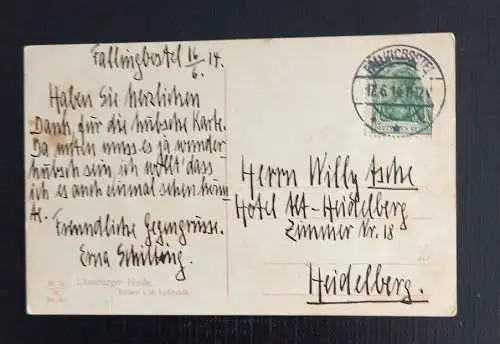 Fallingbostel 16/6. 14.
Haben Sie herzlichen
Dank, für die hübsche Karte.
Da unten muss es ja wunder
hübsch sein, ich wollt' dass
ich es auch einmal sehen könn
te.
Freundliche Gegengrüsse.
Erna Schilling.
Lüneburger Heide.
FALLINGBOSTEL
17.6.14.11-12
Herrn Willy Asche
Hotel Alt-Heidelberg
Zimmer Nr. 18
Heidelberg.